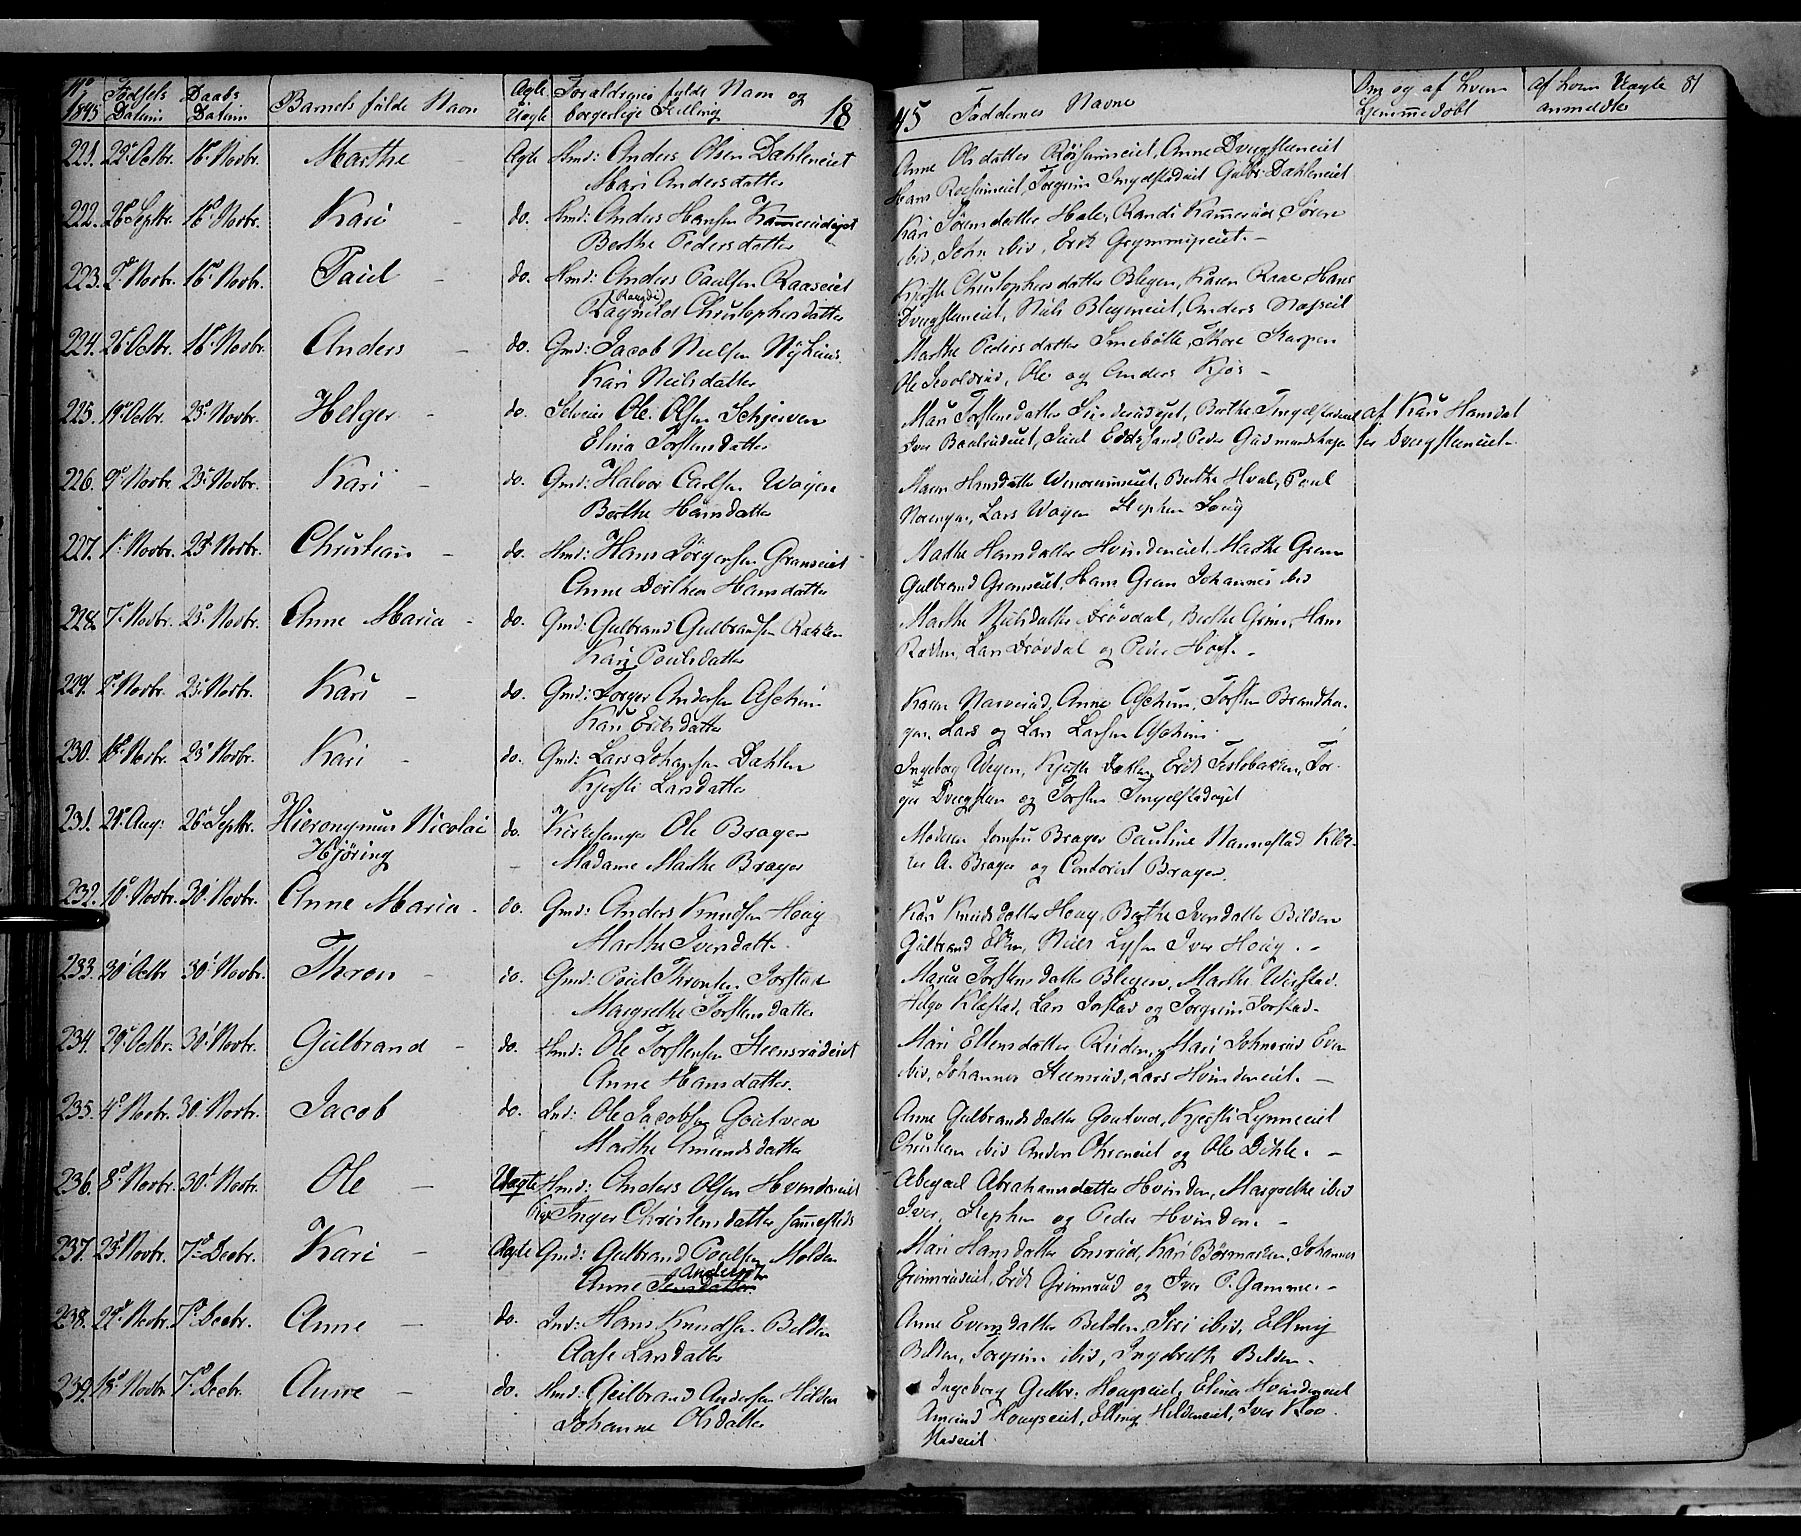 No 1845 Fødsels Datum Daabs Datum Barnets fulde Navn Ægte Uægte Forældrenes fulde Navn og borgerlige Stilling 18
45 Faddernes Navne Om og af hvem hjemmedøbt af hvem Uægte anmeldte 81
221. 22d Octbr. 16d Novbr. Marthe - Ægte Hmd: Anders Olsen Dahleneiet
Mari Andersdatter
Anne Olsdatter Anne Dvergsteneiet
Torgrim Gulbr. Dahleneiet
222. 26d Septbr. 16d Novbr. Kari - do. Hmd: Anders Hansen Kammerudeiet
Berthe Pedersdatter
Kari Sørensdatter Hole, Randi Kammerud Søren
ibid, John ibid, Erik
223. 2d Novbr. 16d Novbr. Paul - do. Hmd: Anders Paulsen Raaseiet
(Rangdi)
Ragnild Christophersdatter
Kjersti Christophersdatter Blegen, Karen Raae Hans
Dvergsteneiet, Niels Blegeneiet, Anders
224. 26d Octbr. 16d Novbr. Anders - do. Gmd: Jacob Nielsen Nyhuus
Kari Nielsdatter
Marthe Pedersdatter Thore
Ole Ole og Anders Kjos -
225. 19d Octbr. 23d Novbr. Helger - do. Selveier Ole Olsen Schjerven
Elina Torstensdatter
Mari Torstensdatter Berthe Ingelstadeiet
Iver Paul Peder Gudmundshagen
af Kari Hansdat
ter Dvergsteneiet
226. 9d Novbr. 23d Novbr. Kari - do. Gmd: Halvor Carlsen Wøyen
Berthe Hansdatter
Maren Hansdatter Berthe Hval, Poul
Norengen, Lars Wøyen Stephen
227. 1d Novbr. 23d Novbr. Christian - do. Hmd: Hans Jørgensen Graneiet
Anne Dorthea Hansdatter
Marthe Hansdatter Hvindeneiet, Marthe Gran
Gulbrand Graneiet, Hans Gran Johannes ibid
228. 7d Novbr. 23d Novbr. Anne Maria - do. Gmd: Gulbrand Gulbransen Rækken
Kari Poulsdatter
Marthe Nielsdatter Drøvdal, Berthe Grini, Hans
Rækken, Lars Drøvdal og Peder
229. 2d Novbr. 23d Novbr. Kari - do. Gmd: Torger Andersen Aschim
Kari Eriksdatter
Karen Anne Aschim, Torsten Brandha-
gen, Lars og Lars Larsen Aschim
230. 18d Novbr. 23d Novbr. Kari - do. Gmd: Lars Johansen Dahlen
Kjersti Larsdatter
Ingeborg Wøyen, Kjersti Dahlen, Erik Tor-
ger Dvergsten og Torsten Ingelstadeiet
231. 21d Aug: 26d Septbr. Hieronymus Nicolai
Hjøring
do. Kirkesanger Ole Brager
- Madame Marthe Brager
Moderen Jomfru Brager Pauline Nannestad
A. Brager og Contorist Brager.
232. 10d Novbr. 30d Novbr. Anne Maria - do. Gmd: Anders Knudsen Houg
Marthe Iversdatter
Kari Knudsdatter Houg, Berthe Iversdatter Bilden
Gulbrand Niels Lysen Iver Houg. -
233. 30d Octbr 30d Novbr. Thron - do. Gmd: Poul Thronsen Jorstad
Margrethe Torstensdatter
Maria Torstensdatter Blegen, Marthe
Helge Klæstad, Lars Jorstad og Torgrim Jorstad.
234. 29d Octbr. 30d Novbr. Gulbrand - do. Hmd: Ole Torstensen Steensrudeiet
Anne Hansdatter.
Mari Ellensdatter Ruden, Mari Johnsrud Even
ibid, Johannes Steensrud, Lars Hvindeneiet. -
235. 4d Novbr. 30d Novbr. Jacob do. Ind: Ole Jacobsen Goutved
Marthe Amundsdatter
Anne Gulbrandsdatter Goutved, Kjersti Lynneeiet
Christian ibid Anders og Ole Dihle. -
236. 8d Novbr. 30d Novbr. Ole - Uægte Hmd: Anders Olsen Hvindeneiet
Inger Christensdatter sammesteds
Abigael Abrahamsdatter Hvinden, Margrethe ibid
Iver, Stephen og Peder Hvinden. -
237. 23d Novbr. 7d Decbr. Kari - Ægte Gmd: Gulbrand Poulsen Molden
Andersdtr
Anne
Mari Hansdatter Kari Børmarken, Johannes
Grimsrudeiet, Erik Grimsrud og Iver P. Gamme. -
238. 22d Novbr. 7d Decbr. Anne - do. Ind: Hans Knudsen Bilden
Aase Larsdatter
Anne Evensdatter Bilden, Siri ibid, Elling
Bilden, Torgrim ibid, Ingebreth Bilden.
239. 18d Novbr. 7d Decbr. Anne - do. Hmd: Gulbrand Andersen Hilden
Johanne Olsdatter
Ingeborg Gulbr: Hougseiet, Elina Hvindeneiet
Amund Hougseiet, Elling Hildeneiet, Iver